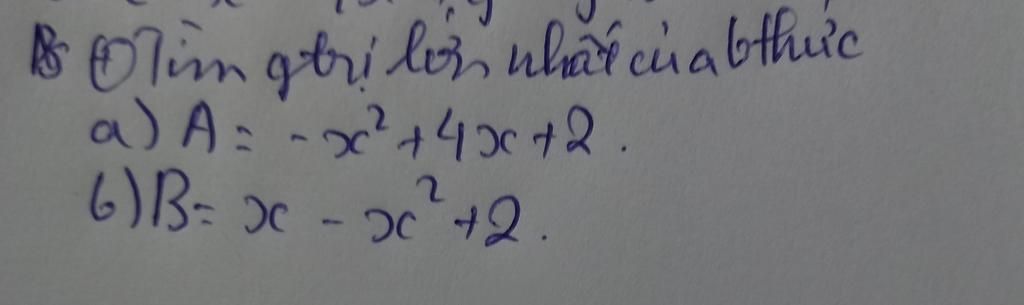 ⊕ Tìm gtrị lớn nhất của bthức
a) A = -x² + 4x + 2.
b) B = x - x² + 2.